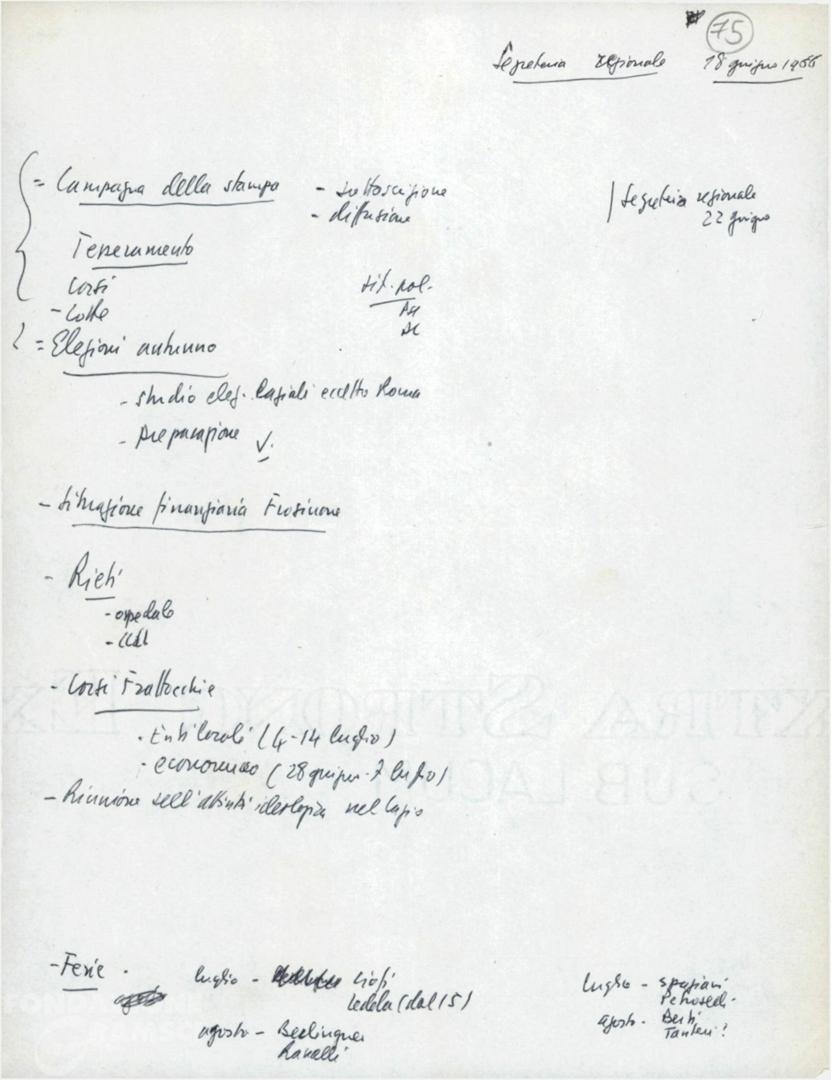 75
Segreteria regionale 18 giugno 1966
= Campagna della stampa - sottoscrizione
- diffusione
Segreteria regionale
22 giugno
Tesseramento
Corsi
sit. pol.
- Lotte
PSI
DC
= Elezioni autunno
- studio elez. laziali eccetto Roma
- preparazione
- Situazione finanziaria Frosinone
- Rieti
- ospedale
- CCdL
- Corsi Frattocchie
- Enti locali (4-14 luglio)
- economico (28 giugno - 7 luglio)
- Riunione sull'attività ideologica nel Lazio
- Ferie
luglio - Ciofi
(dal 15)
agosto - Berlinguer
Ranalli
luglio - Spaziani
agosto - Berti
EXTRA STRONG
SUB LACU